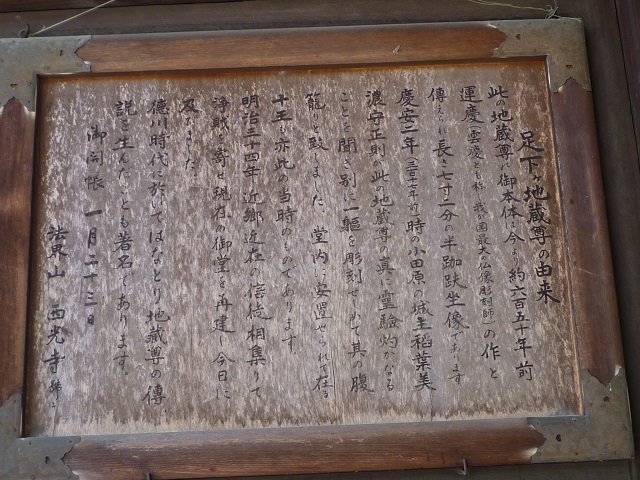 足下ヶ地蔵尊の由来
此の地蔵尊の御本体は今より約六百五十年前
運慶(雲慶とも称し我が国最大の仏像彫刻師)の作と
傳えられ長さ七寸二分の半跏趺坐像であります
慶安二年(三百十七年前)時の小田原の城主稲葉美
濃守正則が此の地蔵尊の真に霊驗灼かなる
ことを聞き別に一軀を彫刻せしめて其の腹
籠と致しました。堂内に安置せられて在る
十王も亦此の当時のものであります
明治三十四年近郷近在の信徒相集りて
浄財を寄せ現在の御堂を再建し今日に
及びました。
徳川時代に於いてはなとり地蔵尊の傳
説を生んだことも著名であります。
御開帳 一月二十三日
法界山 西光寺